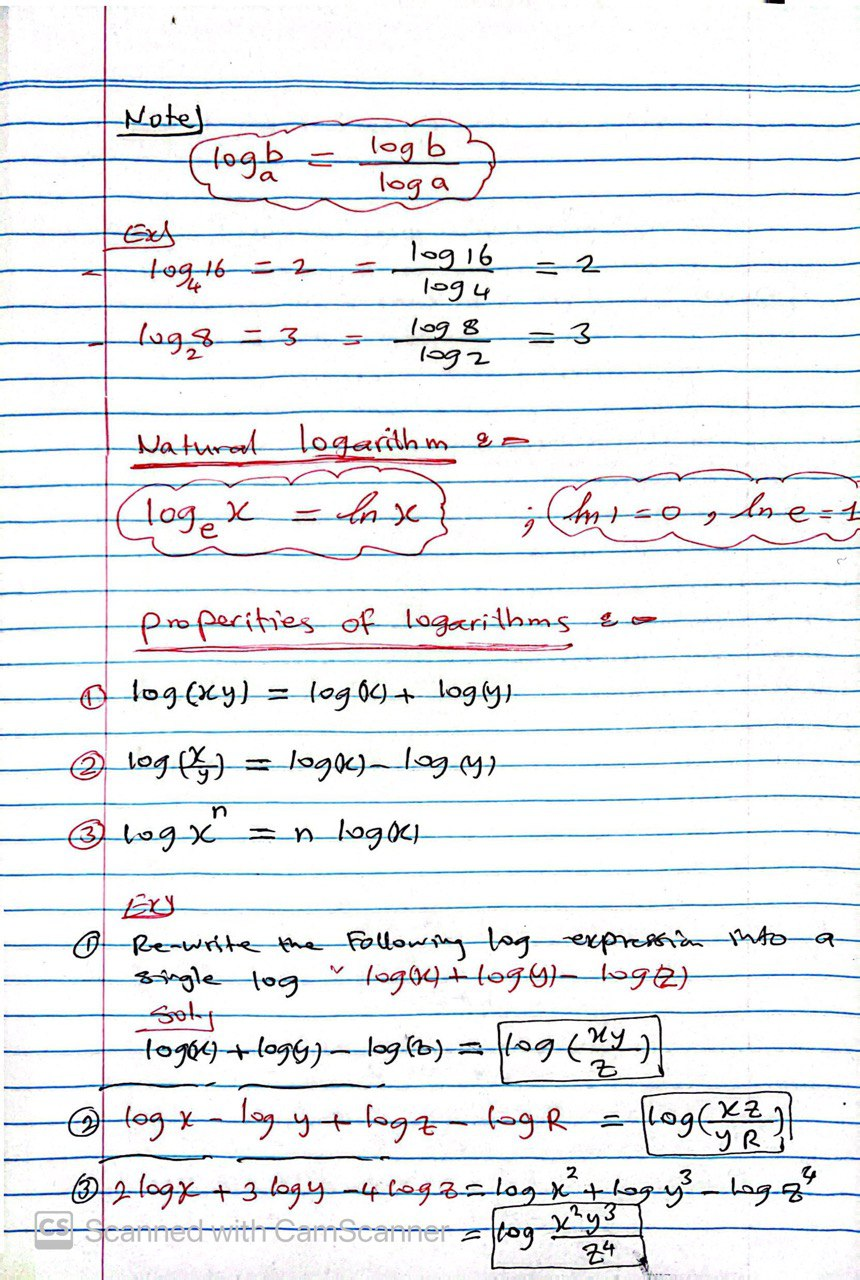 Note)
log_a b = log b / log a
Ex)
- log_4 16 = 2 = log 16 / log 4 = 2
- log_2 8 = 3 = log 8 / log 2 = 3
Natural logarithm :-
log_e x = ln x ; ln 1 = 0 , ln e = 1
Properities of logarithms :-
① log(xy) = log(x) + log(y)
② log(x/y) = log(x) - log(y)
③ log x^n = n log(x)
Ex)
① Re-write the Following log expression into a
single log " log(x) + log(y) - log(z)
Sol.)
log(x) + log(y) - log(z) = log (xy / z)
② log x - log y + log z - log R = log(xz / yR)
③ 2 log x + 3 log y - 4 log z = log x² + log y³ - log z⁴
= log x²y³ / z⁴
CS Scanned with CamScanner